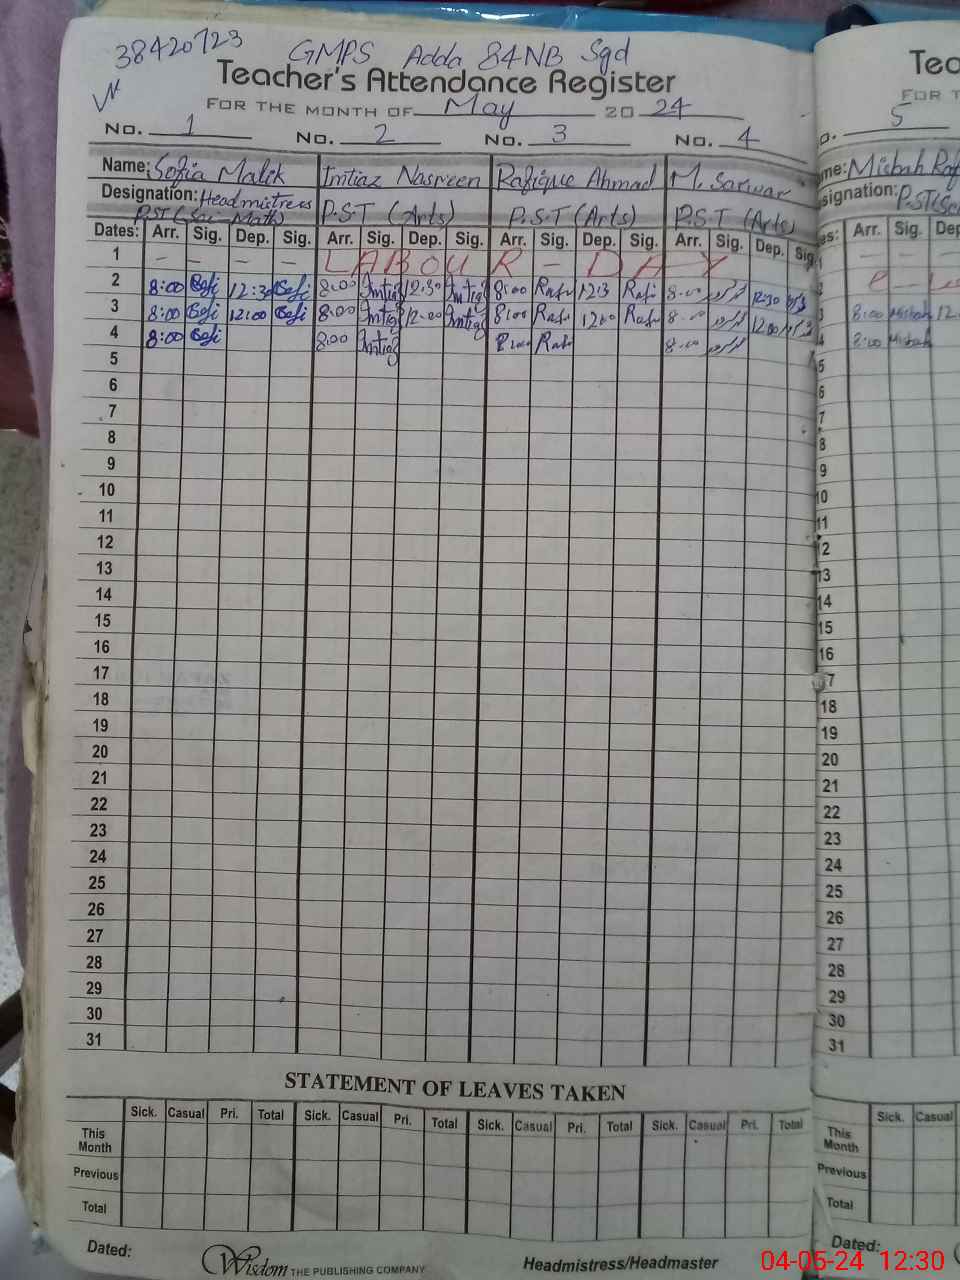 38420723 GMPS Adda 84NB Sgd
Teacher's Attendance Register
FOR THE MONTH OF May 20 24
No. 1 No. 2 No. 3 No. 4
Name: Sofia Malik Imtiaz Nasreen Rafique Ahmad M. Sarwar
Designation: Headmistress
PST (Sci-Math) P.S.T (Arts) P.S.T (Arts) P.S.T (Arts)
Dates: Arr. Sig. Dep. Sig. Arr. Sig. Dep. Sig. Arr. Sig. Dep. Sig. Arr. Sig. Dep. Sig.
1 — — — — LABOUR - DAY
2 8:00 Sofi 12:30 Sofi 8:00 Imtiaz 12:30 Imtiaz 8:00 Rafi 123 Rafi 8:00 12:30
3 8:00 Sofi 12:00 Sofi 8:00 Imtiaz 12:00 Imtiaz 8:00 Rafi 1200 Rafi 8:00 1200
4 8:00 Sofi 8:00 Imtiaz 8:00 Rafi 8:00
5
6
7
8
9
10
11
12
13
14
15
16
17
18
19
20
21
22
23
24
25
26
27
28
29
30
31
STATEMENT OF LEAVES TAKEN
Sick. Casual Pri. Total Sick. Casual Pri. Total Sick. Casual Pri. Total Sick. Casual Pri. Total
This Month
Previous
Total
Dated:
Wisdom THE PUBLISHING COMPANY Headmistress/Headmaster
Teac
FOR T
o. 5
me: Misbah Raf
signation: PST(Sc
es: Arr. Sig. Dep
— — —
3 8:00 Misbah 12
4 8:00 Misbah
5
6
7
8
9
10
11
12
13
14
15
16
17
18
19
20
21
22
23
24
25
26
27
28
29
30
31
Sick. Casual
This Month
Previous
Total
Dated:
04-05-24 12:30